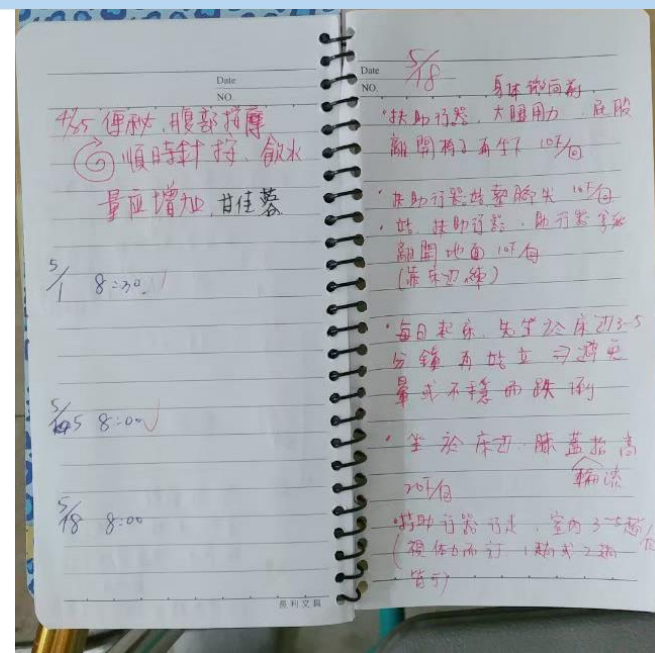 Date
NO.
4/25 便秘,腹部按摩
順時針按、飲水
量应增加, 甘佳蓉
5/1 8:30
5/5 8:00
5/18 8:00
勝利文具
Date
NO.
5/18
身体微向前
·扶助行器,大腿用力,屁股
離開椅子再坐下 10下/回
·扶助行器站墊腳尖 10下/每
·站,扶助行器,助行器
離開地面 10下/每
(靠床边練)
·每日起床,先坐於床边3-5
分鐘再站立→避免
暈或不穩而跌倒
·坐於床边,膝蓋抬高
輪流
20下/每
·持助行器行走,室内3~5趟/次
(視体力而行,1趟或2趟
皆可)